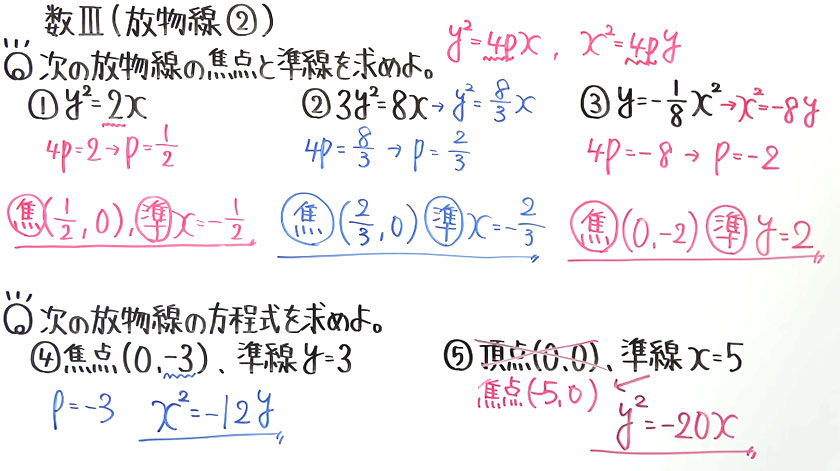 数Ⅲ(放物線②)
y²=4px , x²=4py
Q 次の放物線の焦点と準線を求めよ。
① y²=2x
4p=2→p=1/2
焦(1/2,0), 準 x=-1/2
② 3y²=8x→y²=8/3x
4p=8/3→p=2/3
焦(2/3,0) 準 x=-2/3
③ y=-1/8x²→x²=-8y
4p=-8→p=-2
焦(0,-2) 準 y=2
Q 次の放物線の方程式を求めよ。
④焦点(0,-3)、準線y=3
p=-3 x²=-12y
⑤頂点(0,0)、準線x=5
焦点(-5,0) ←
y²=-20x